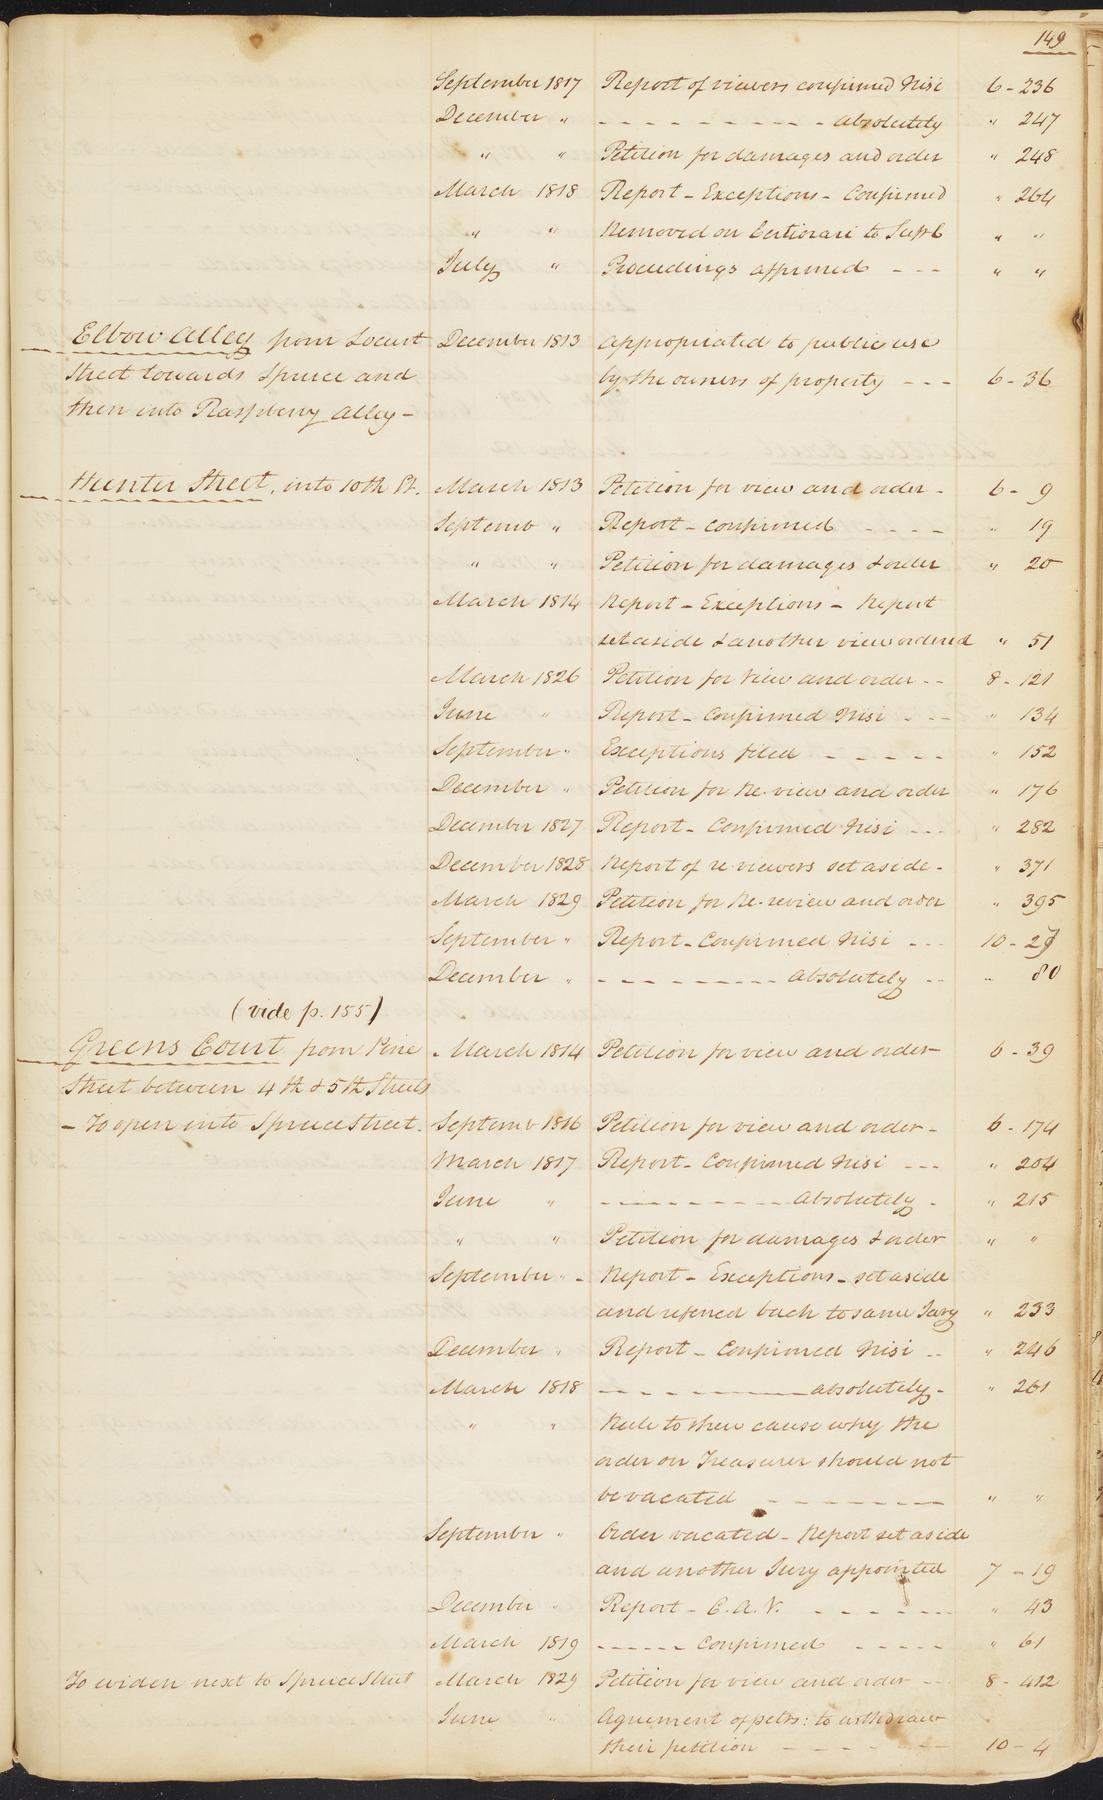 149
September 1817 Report of viewers confirmed Nisi 6 - 236
December " - - - - - - - - - - absolutely " 247
" " Petition for damages and order " 248
March 1818 Report - Exceptions - Confirmed " 264
" " Removed on Certiorari to Sup C " "
July " Proceedings affirmed - - - " "
Elbow Alley from Locust December 1813 appropriated to public use
Street towards Spruce and by the owners of property - - - 6 - 36
then into Raspberry Alley -
Hunter Street, into 10th St. March 1813 Petition for view and order - 6 - 9
Septemb " Report - confirmed - - - - " 19
" " Petition for damages & order " 20
March 1814 Report - Exceptions - Report
set aside & another view ordered " 51
March 1826 Petition for View and order - - 8 - 121
June " Report - Confirmed Nisi - - - " 134
September " Exceptions filed - - - - - " 152
December " Petition for Re-view and order " 176
December 1827 Report - Confirmed Nisi - - - " 282
December 1828 Report of re-viewers set aside - " 371
March 1829 Petition for Re-review and order " 395
September " Report - Confirmed Nisi - - - 10 - 27
December " - - - - - - - - - absolutely - - " 80
(vide p. 155)
Greens Court from Pine March 1814 Petition for view and order - 6 - 39
Street between 4th & 5th Streets
- To open into Spruce Street. Septemb 1816 Petition for view and order - 6 - 174
March 1817 Report - Confirmed Nisi - - - " 204
June " - - - - - - - - - absolutely - " 215
" " Petition for damages & order " "
September " - Report - Exceptions - set aside
and referred back to same Jury " 233
December " Report - Confirmed Nisi - - " 246
March 1818 - - - - - - - - - absolutely - " 261
" " Rule to shew cause why the
order on Treasurer should not
be vacated - - - - - - - - " "
September " Order vacated - Report set aside
and another Jury appointed 7 - 19
December " Report - C. A. V. - - - - - - " 43
March 1819 - - - - - Confirmed - - - - - " 61
To widen next to Spruce Street March 1829 Petition for view and order - - - 8 - 412
June " Agreement of petrs: to withdraw
their petition - - - - - - - - 10 - 4